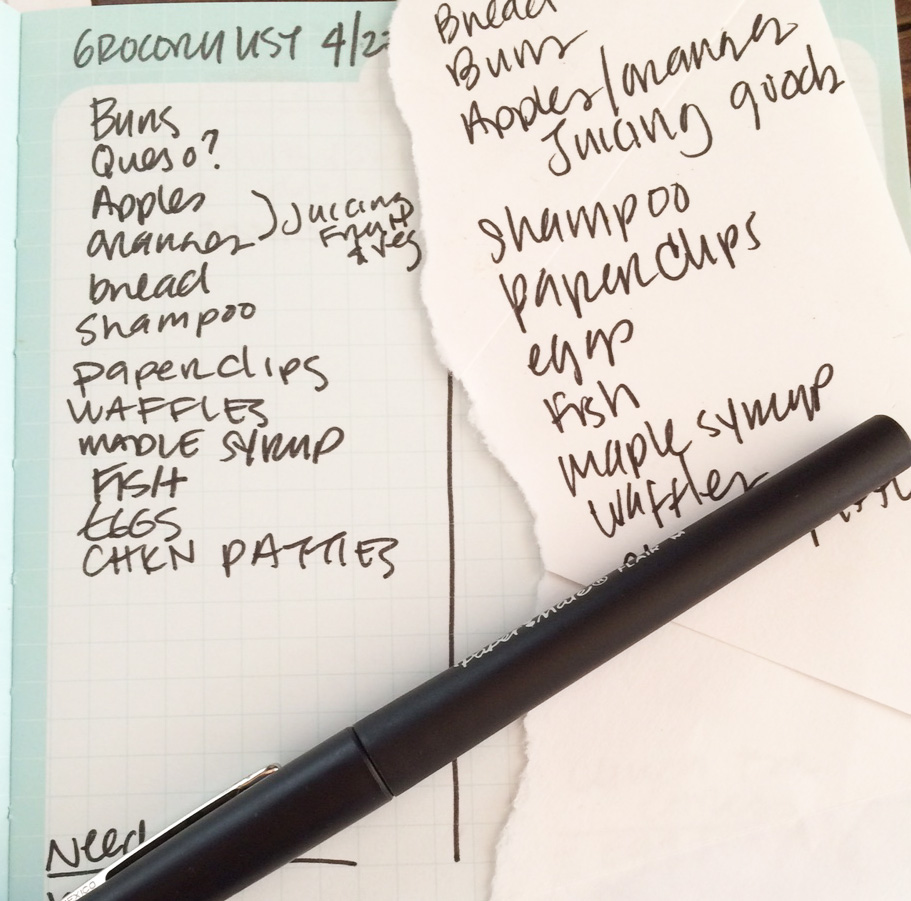 GROCORY LIST 4/2
Buns
Queso?
Apples
oranges
Juicing
Fruit
& Veg
bread
Shampoo
paperclips
WAFFLES
MAPLE SYRUP
FISH
EGGS
CHKN PATTIES
Need
Bread
Buns
Apples/oranges
Juicing goods
shampoo
paperclips
eggs
Fish
maple syrup
Waffles
Paper Mate® FLAIR M
MEXICO